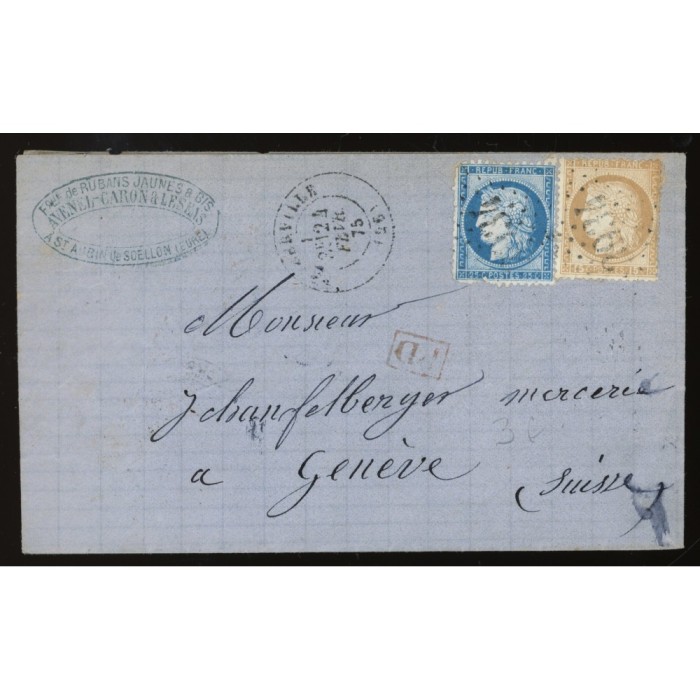 FABE de RUBANS JAUNES & GRIS
AVENEL-CARON & LESEAS
A ST AUBIN de SCELLON (EURE)
ERVILLE (25)
24
FEVR
75
REPUB · FRANC
25 C POSTES 25 C
REPUB · FRANC
PD
Monsieur
J. Schanfelberger mercerie
a Genève Suisse